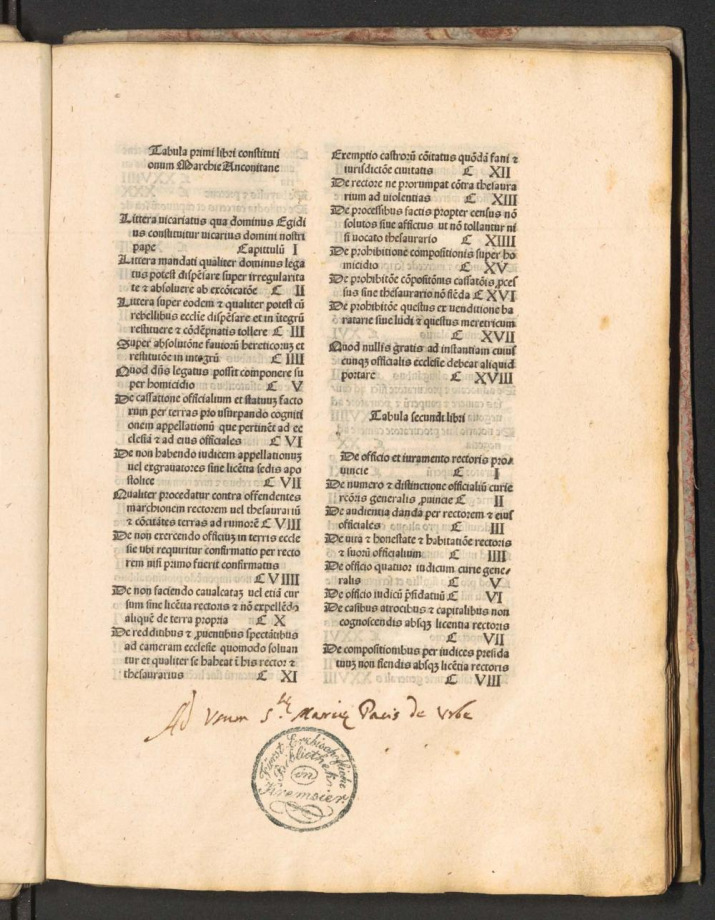 Tabula primi libri constituti
onum Marchie Anconitane
Littera vicariatus qua dominus Egidi
us constituitur uicarius domini nostri
pape Capittulũ I
Littera mandati qualiter dominus lega
tus potest dispẽsare super irregularita
te ⁊ absoluere ab excõicatõe C II
Littera super eodem ⁊ qualiter potest cũ
rebellibus ecclie dispẽsare et in ũtegrũ
restituere ⁊ cõdẽpnatis tollere C III
Super absolutõne fautorũ hereticoruꝫ et
restitutõe in integrũ C IIII
Quod dñs legatus posset componere su
per homicidio C V
De cassatione officialium et statuuꝫ facto
rum per terras pro usurpando cogniti
onem appellationũ que pertinẽt ad ec
clesiã ⁊ ad eius officiales C VI
De non habendo iudicem appellationuꝫ
uel exgrauatores sine licẽtia sedis apo
stolice C VII
Qualiter procedatur contra offendentes
marchionem rectorem uel thesaurariũ
⁊ cõcitãtes terras ad rumorẽ C VIII
De non exercendo officiuꝫ in terris eccle
sie ubi requiritur confirmatio per recto
rem nisi primo fuerit confirmatus
C VIIII
De non faciendo caualcataꝫ uel etiã cur
sum sine licẽtia rectoris ⁊ nõ expellẽdo
aliquẽ de terra propria C X
De redditibus ⁊ ꝓuentibus spectãtibus
ad cameram ecclesie quomodo soluan
tur et qualiter se habeãt ĩ his rector ⁊
thesaurarius C XI
Exemptio castrorũ cõitatus quõdã fani ⁊
iurisdictõe ciuitatis C XII
De rectore ne prorumpat cõtra thesaura
rium ad violentias C XIII
De processibus factis propter census nõ
solutos siue afflictus ut nõ tollantur ni
si uocato thesaurario C XIIII
De prohibitione compositionis super ho
micidio C XV
De prohibitõe cõpositõnis cassatõis ꝓces
sus sine thesaurario nõ fiẽda C XVI
De prohibitõe questus ex venditione ba
ratarie siue ludi ⁊ questus meretricum
C XVII
Quod nullis gratis ad instantiam cuius
cunqꝫ officialis ecclesie debeat aliquid
portare C XVIII
Tabula secundi libri
De officio et iuramento rectoris pro⸗
uincie C I
De numero ⁊ distinctione officialiũ curie
rcõris generalis ꝓuincie C II
De audientia danda per rectorem ⁊ eius
officiales C III
De uita ⁊ honestate ⁊ habitatiõe rectoris
⁊ suorũ officialium C IIII
De officio quatuor iudicum curie gene⸗
ralis C V
De officio iudicũ p̃sidatiũ C VI
De casibus atrocibus ⁊ capitalibus non
cognoscendis absqꝫ licentia rectoris
C VII
De compositionibus per iudices presida
tuuꝫ non fiendis absqꝫ licẽtia rectoris
C VIII
Ad Usum S.tę Marię Pacis de Urbe
Fürst Erzbischöfliche
Bibliothek
in
Kremsier